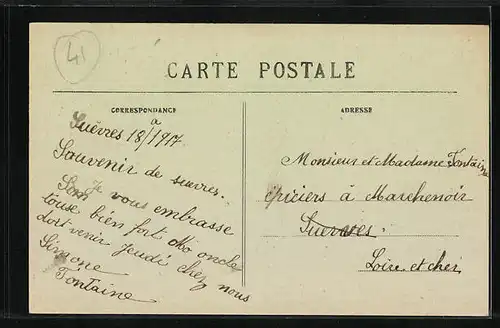 41
CARTE POSTALE
CORRESPONDANCE
ADRESSE
à
Suèvres 18/1917
Souvenir de suevres.
Je vous embrasse
touse bien fort Mo oncle
doit venir Jeudi chez nous
Simone
Fontaine
Monsieur et Madame Fontaine
épiciers à Marchenoir
Suevres.
Loire et cher